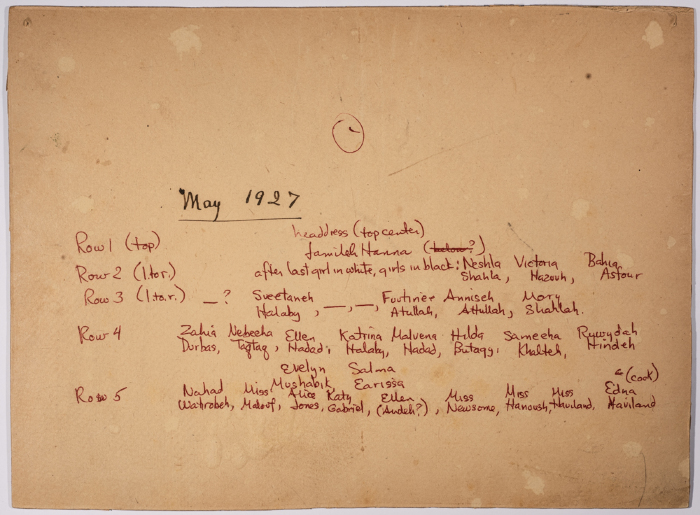 May 1927
headdress (top center)
Row 1 (top) Jamileh Hanna (below?)
Row 2 (l to r.) after last girl in white, girls in black: Neshla Victoria Bahia
Shahla, Hazouh, Asfour
Row 3 (l to r.) —? Sveetaneh —, —, Futiner Anniseh Mary
Halaby, Atullah, Attullah, Shahlah.
Row 4 Zahia Nebeeha Ellen Katrina Malvena Hilda Sameeha Ruwydah
Durbas, Taqtaq, Hadad, Halaby, Hadad, Butaqy, Khalteh, Hindeh
Evelyn Salma
Mushabik Earissa
Row 5 Nahad Miss Alice Katy Ellen Miss Miss Miss Edna (cook)
Watrobeh, Malouf, Jones, Gabriel, (Audeh?), Newsome, Hanoush, Haviland, Haviland